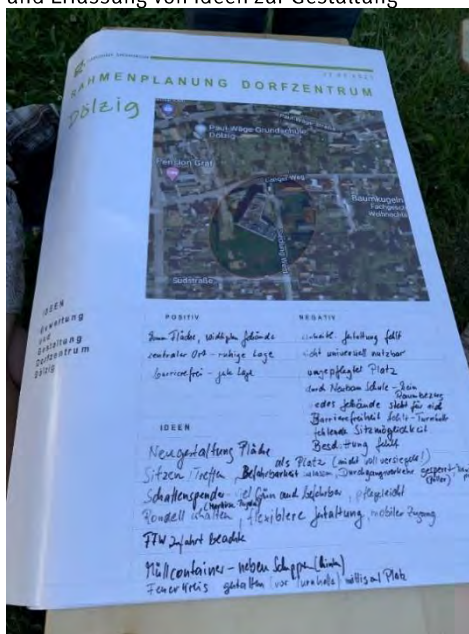 und Erfassung von Ideen zur Gestaltung
RAHMENPLANUNG DORFZENTRUM
Dölzig
Paul-Wäge-Grundschule
Dölzig
Pension Graf
Langer Weg
Baumkugeln
Südstraße
IDEEN
Bewertung
und
Gestaltung
Dorfzentrum
Dölzig
POSITIV
Fläche, Gebäude
zentraler Ort - ruhige Lage
barrierefrei - gute Lage
NEGATIV
Gestaltung fehlt
nicht universell nutzbar
ungepflegter Platz
durch Neubau Schule - kein Raumbezug
jedes Gebäude steht für sich
Barrierefreiheit fehlt - Turnhalle
fehlende Sitzmöglichkeit
fehlt
IDEEN
Neugestaltung Fläche als Platz (nicht voll versiegelt)
Sitzen / Treffen, Befahrbarkeit lassen, Durchgangsverkehr gesperrt
Schattenspender viel Grün und befahrbar, pflegeleicht
Rondell erhalten, flexiblere Gestaltung, mobiler Zugang
FFW Zufahrt beachten
Müllcontainer - neben Schuppen (hinten)
Feuerkreis gestalten (vor Turnhalle) mittig auf Platz